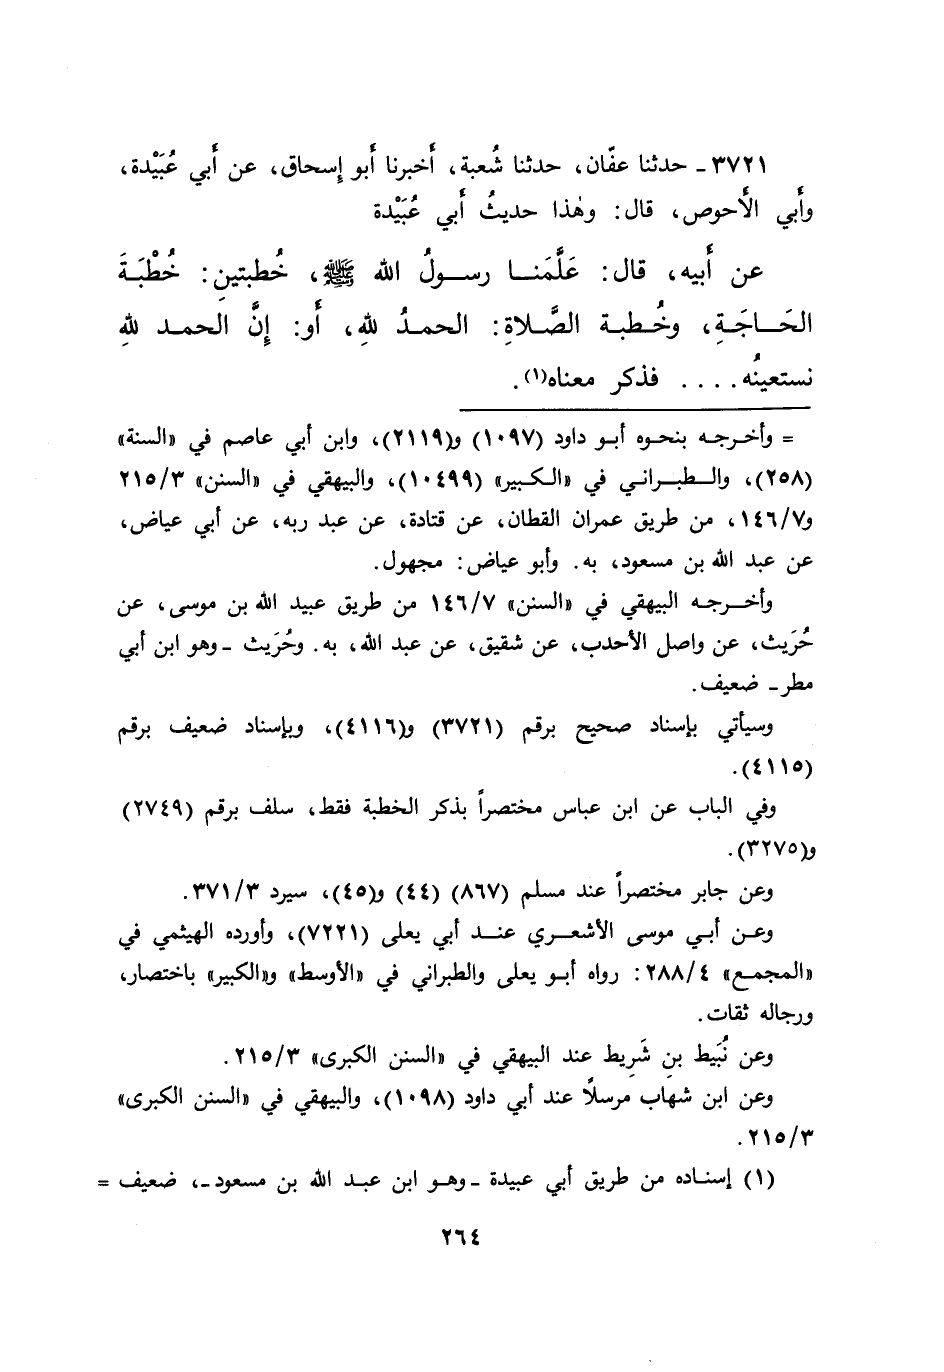 ٣٧٢١ ـ حدثنا عفّان، حدثنا شُعبة، أخبرنا أبو إسحاق، عن أبي عُبَيْدة،
وأبي الأحوص، قال: وهٰذا حديثُ أبي عُبَيْدة
عن أبيه، قال: عَلَّمَنا رسولُ الله ﷺ، خُطبتينِ: خُطْبَةَ
الحَاجَةِ، وخُطبة الصَّلاةِ: الحمدُ للهِ، أو: إِنَّ الحمد للهِ
نستعينُه.... فذكر معناه(١).
= وأخرجه بنحوه أبو داود (١٠٩٧) و(٢١١٩)، وابن أبي عاصم في «السنة»
(٢٥٨)، والطبراني في «الكبير» (١٠٤٩٩)، والبيهقي في «السنن» ٢١٥/٣
و١٤٦/٧، من طريق عمران القطان، عن قتادة، عن عبد ربه، عن أبي عياض،
عن عبد الله بن مسعود، به. وأبو عياض: مجهول.
وأخرجه البيهقي في «السنن» ١٤٦/٧ من طريق عبيد الله بن موسى، عن
حُرَيث، عن واصل الأحدب، عن شقيق، عن عبد الله، به. وحُرَيث ـ وهو ابن أبي
مطر ـ ضعيف.
وسيأتي بإسناد صحيح برقم (٣٧٢١) و(٤١١٦)، وبإسناد ضعيف برقم
(٤١١٥).
وفي الباب عن ابن عباس مختصراً بذكر الخطبة فقط، سلف برقم (٢٧٤٩)
و(٣٢٧٥).
وعن جابر مختصراً عند مسلم (٨٦٧) (٤٤) و(٤٥)، سيرد ٣٧١/٣.
وعن أبي موسى الأشعري عند أبي يعلى (٧٢٢١)، وأورده الهيثمي في
«المجمع» ٢٨٨/٤: رواه أبو يعلى والطبراني في «الأوسط» و«الكبير» باختصار،
ورجاله ثقات.
وعن نُبَيط بنِ شَرِيط عند البيهقي في «السنن الكبرى» ٢١٥/٣.
وعن ابن شهاب مرسلًا عند أبي داود (١٠٩٨)، والبيهقي في «السنن الكبرى»
٢١٥/٣.
(١) إسناده من طريق أبي عبيدة ـ وهو ابن عبد الله بن مسعود ـ، ضعيف =
٢٦٤